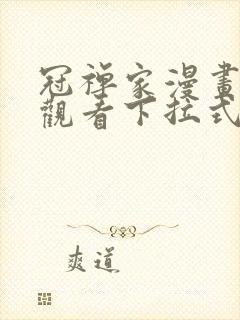 冠禅家漫畫
觀看下拉式
爽道